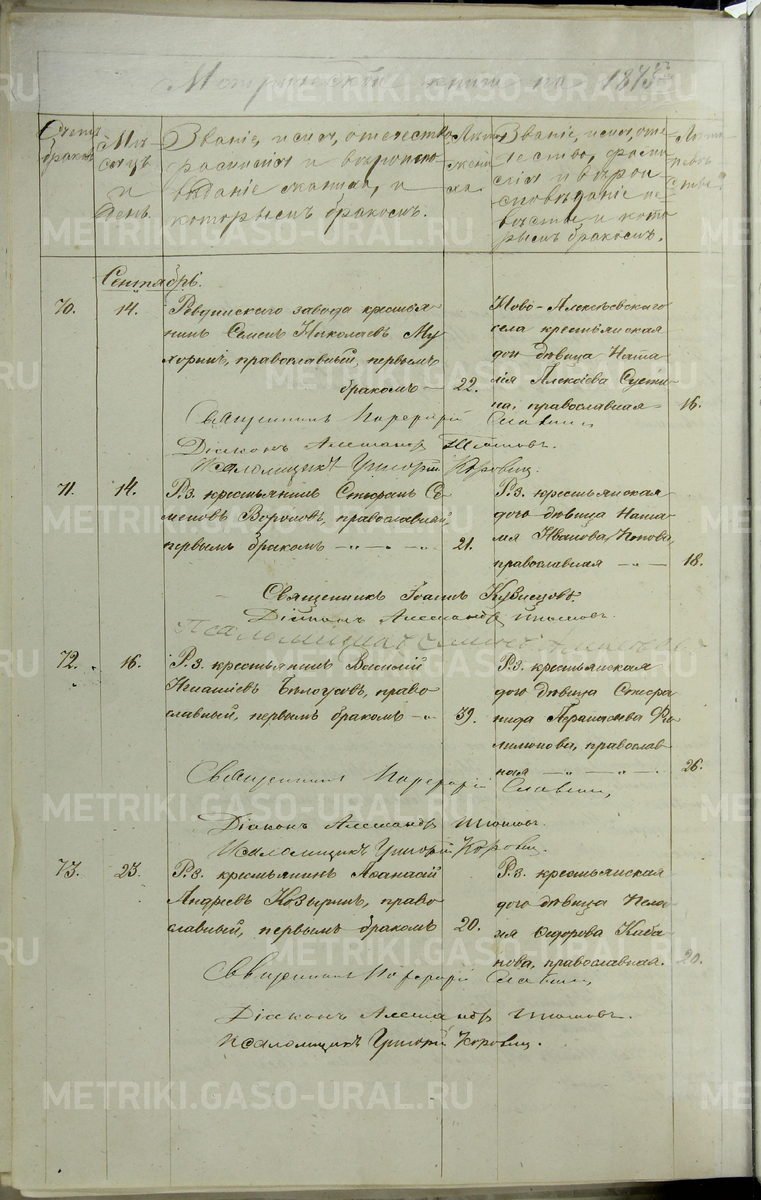 Метрической книги на 1875
Счетъ браковъ
Мѣсяцъ и день.
Званіе, имя, отчество,
фамилія и вѣроиспо-
вѣданіе жениха, и
которымъ бракомъ.
Лѣта жениха.
Званіе, имя, отче-
чество, фами-
лія и вѣрои-
сповѣданіе не-
вѣсты и кото-
рымъ бракомъ.
Лѣта невѣсты.
Сентябрь.
70. 14.
Ревдинскаго завода крестья-
нинъ Семенъ Николаевъ Му-
хоринъ, православный, первымъ
бракомъ — 22.
Ново-Алексѣевскаго
села крестьянская
дочь дѣвица Ната-
лія Алексіева
православная 16.
Священникъ Славнинъ
Діаконъ Александръ
Псаломщикъ Григорій Коровинъ.
71. 14.
Р.з. крестьянинъ Стефанъ Се-
меновъ Вороновъ, православный,
первымъ бракомъ — 21.
Р.з. крестьянская
дочь дѣвица Ната-
лія Иванова Попова,
православная — 18.
Священникъ Іоаннъ Кузнецовъ.
Діаконъ Александръ
Псаломщикъ
72. 16.
Р.з. крестьянинъ Василій
Игнатіевъ Бѣлоусовъ, право-
славный, первымъ бракомъ — 39.
Р.з. крестьянская
дочь дѣвица Стефа-
нида Фи-
лимонова, православ-
ная — 26.
Священникъ Славнинъ
Діаконъ Александръ
Псаломщикъ Григорій Коровинъ.
73. 23.
Р.з. крестьянинъ Аѳанасій
Андреевъ Козыринъ, право-
славный, первымъ бракомъ 20.
Р.з. крестьянская
дочь дѣвица Пела-
гія Ѳедорова Каба-
нова, православная. 20.
Священникъ Славнинъ
Діаконъ Александръ
Псаломщикъ Григорій Коровинъ.
METRIKI.GASO-URAL.RU